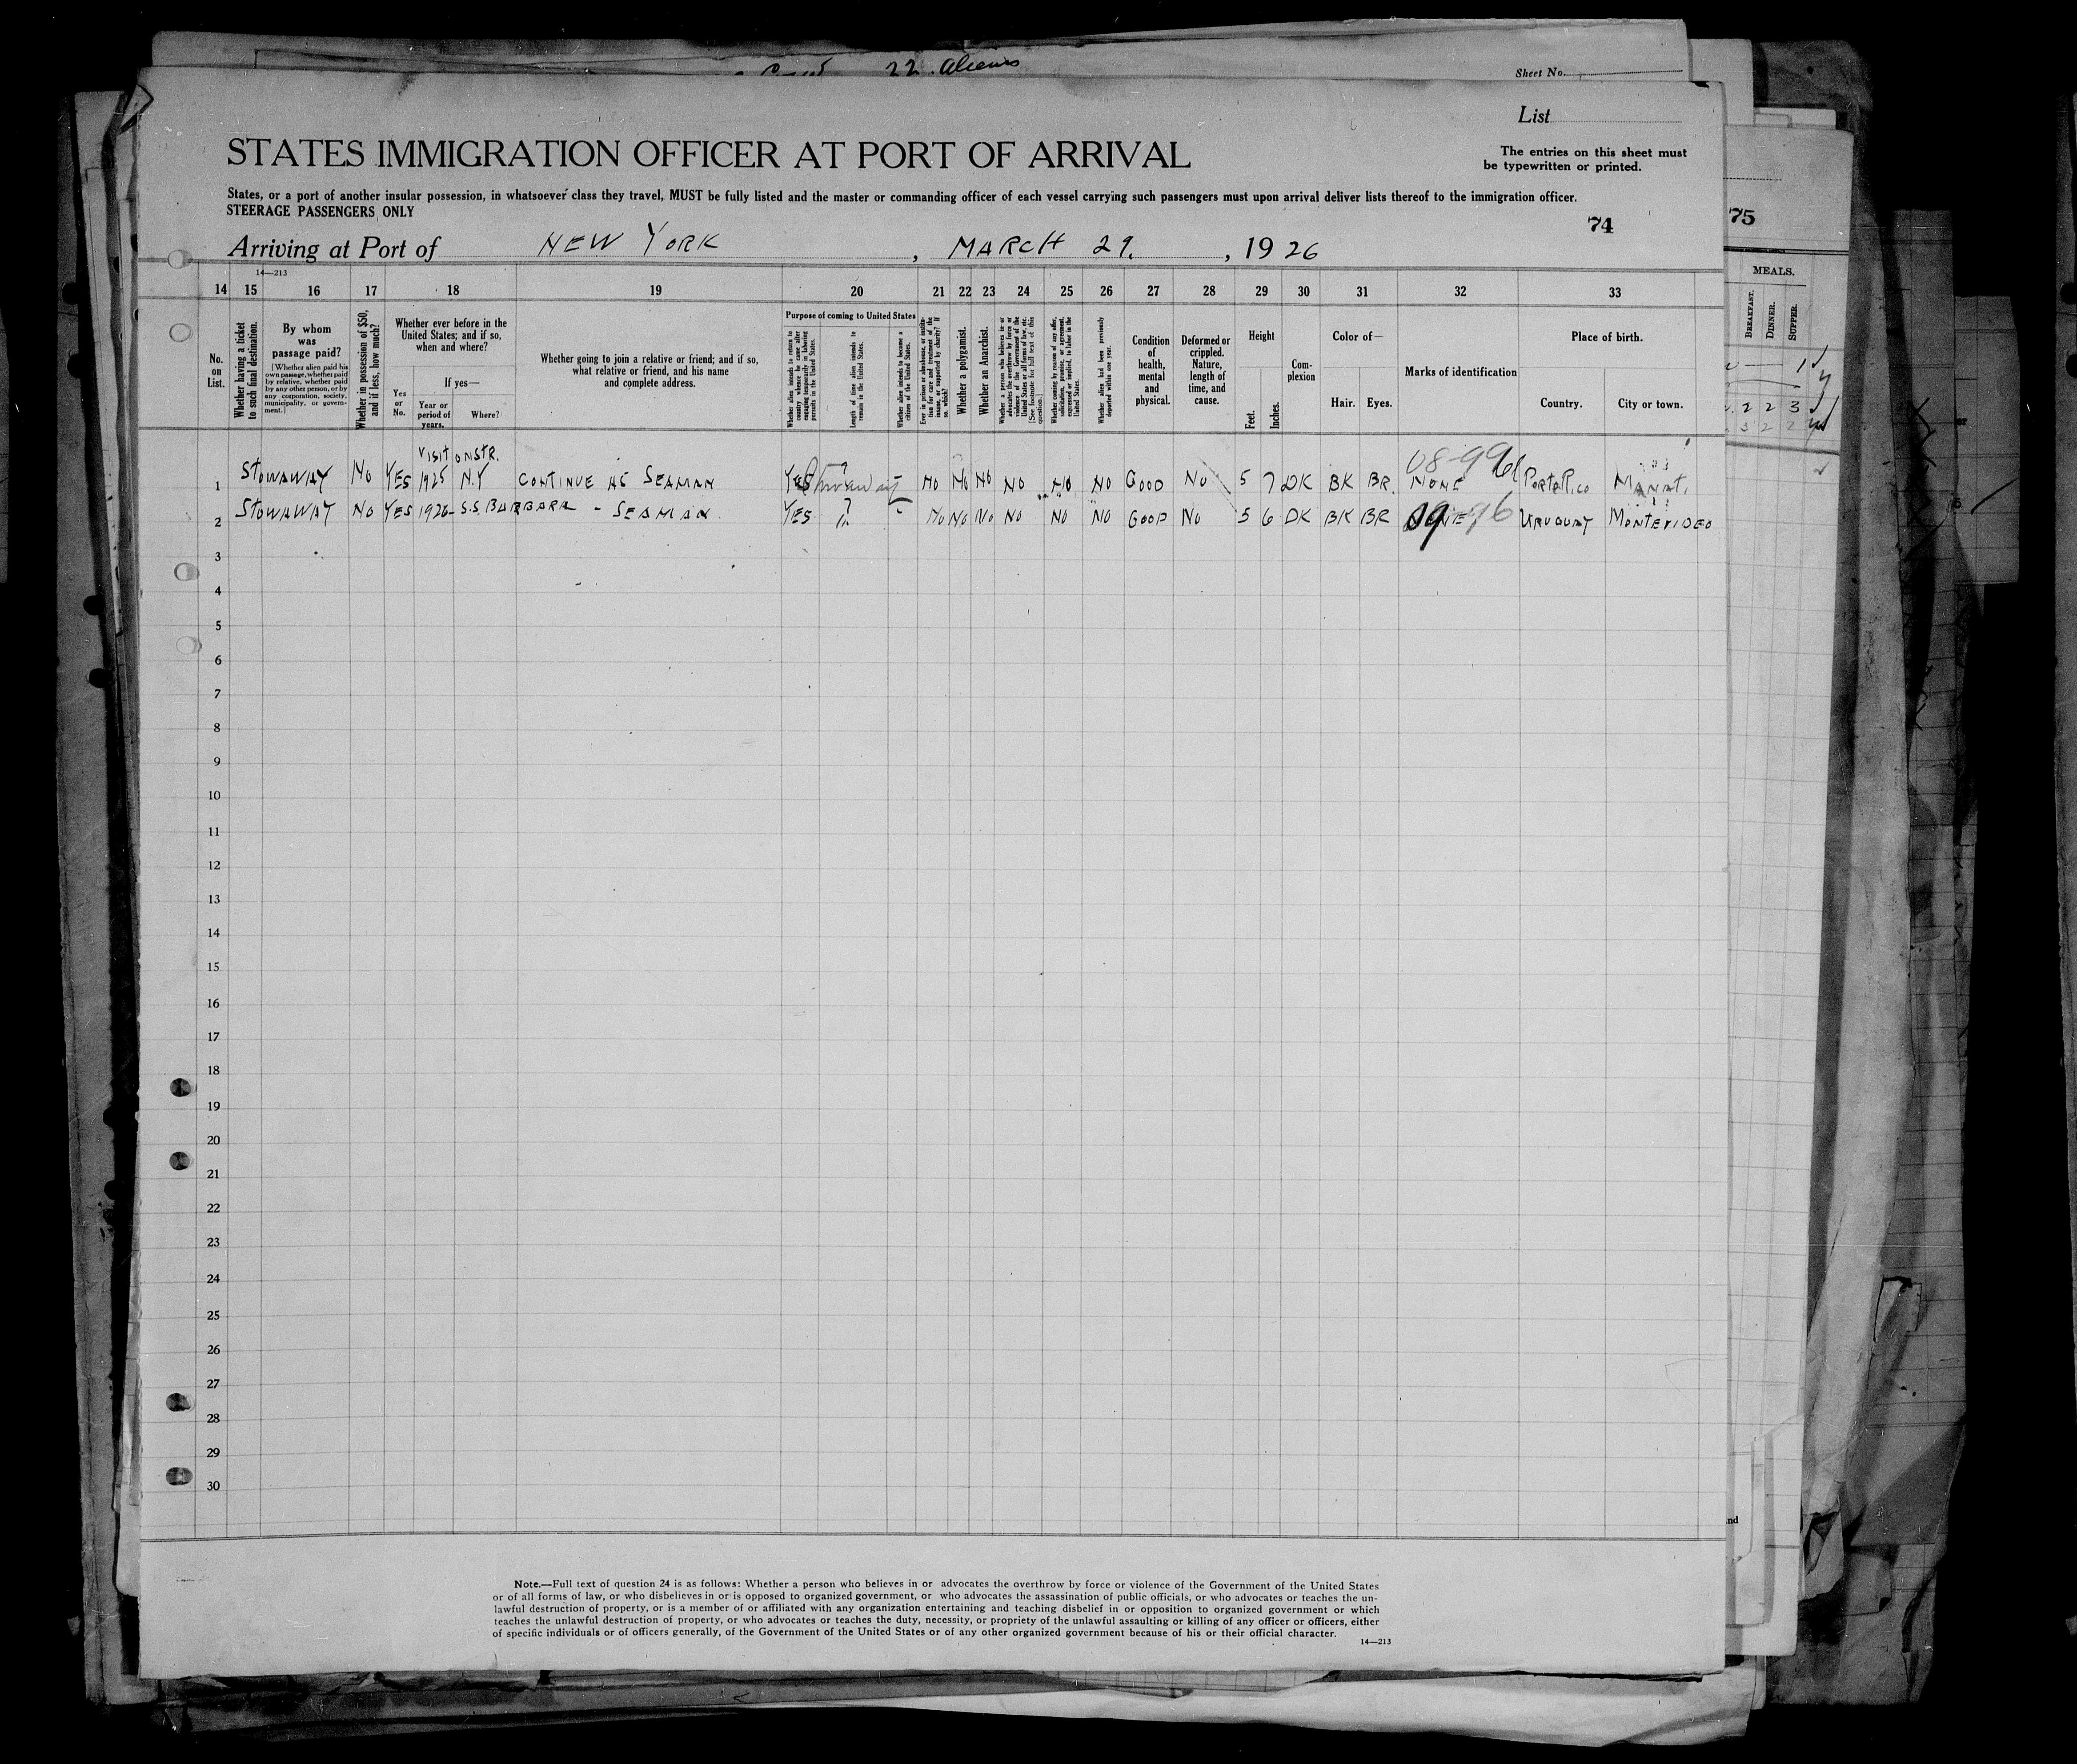 22 Aliens
Sheet No.
List
STATES IMMIGRATION OFFICER AT PORT OF ARRIVAL
The entries on this sheet must
be typewritten or printed.
States, or a port of another insular possession, in whatsoever class they travel, MUST be fully listed and the master or commanding officer of each vessel carrying such passengers must upon arrival deliver lists thereof to the immigration officer.
STEERAGE PASSENGERS ONLY
74
75
Arriving at Port of NEW YORK, MARCH 29, 1926
14—213
14 15 16 17 18 19 20 21 22 23 24 25 26 27 28 29 30 31 32 33
MEALS.
BREAKFAST. DINNER. SUPPER.
No. on List.
Whether having a ticket to such final destination.
By whom was passage paid?
[Whether alien paid his own passage, whether paid by relative, whether paid by any other person, or by any corporation, society, municipality, or government.]
Whether in possession of $50, and if less, how much?
Whether ever before in the United States; and if so, when and where?
Yes or No.
If yes—
Year or period of years.
Where?
Whether going to join a relative or friend; and if so, what relative or friend, and his name and complete address.
Purpose of coming to United States
Whether alien intends to return to country whence he came after engaging temporarily in laboring pursuits in the United States.
Length of time alien intends to remain in the United States.
Whether alien intends to become a citizen of the United States.
Ever in prison or almshouse, or institution for care and treatment of the insane, or supported by charity? If so, which?
Whether a polygamist.
Whether an Anarchist.
Whether a person who believes in or advocates the overthrow by force or violence of the Government of the United States or all forms of law, etc. [See footnote for full text of this question.]
Whether coming by reason of any offer, solicitation, promise, or agreement, expressed or implied, to labor in the United States.
Whether alien had been previously deported within one year.
Condition of health, mental and physical.
Deformed or crippled. Nature, length of time, and cause.
Height
Feet. Inches.
Complexion
Color of—
Hair. Eyes.
Marks of identification
Place of birth.
Country. City or town.
VISIT ON STR.
1 STOWAWAY NO YES 1925 N.Y CONTINUE AS SEAMAN YES ? NO NO NO NO NO NO GOOD NO 5 7 DK BK BR. NONE PORTO RICO MANATI
2 STOWAWAY NO YES 1926 - S.S. BARBARA - SEAMAN YES ? NO NO NO NO NO NO GOOD NO 5 6 DK BK BR URUGUAY MONTEVIDEO
3
4
5
6
7
8
9
10
11
12
13
14
15
16
17
18
19
20
21
22
23
24
25
26
27
28
29
30
Note.—Full text of question 24 is as follows: Whether a person who believes in or advocates the overthrow by force or violence of the Government of the United States
or of all forms of law, or who disbelieves in or is opposed to organized government, or who advocates the assassination of public officials, or who advocates or teaches the un-
lawful destruction of property, or is a member of or affiliated with any organization entertaining and teaching disbelief in or opposition to organized government or which
teaches the unlawful destruction of property, or who advocates or teaches the duty, necessity, or propriety of the unlawful assaulting or killing of any officer or officers, either
of specific individuals or of officers generally, of the Government of the United States or of any other organized government because of his or their official character.
14—213